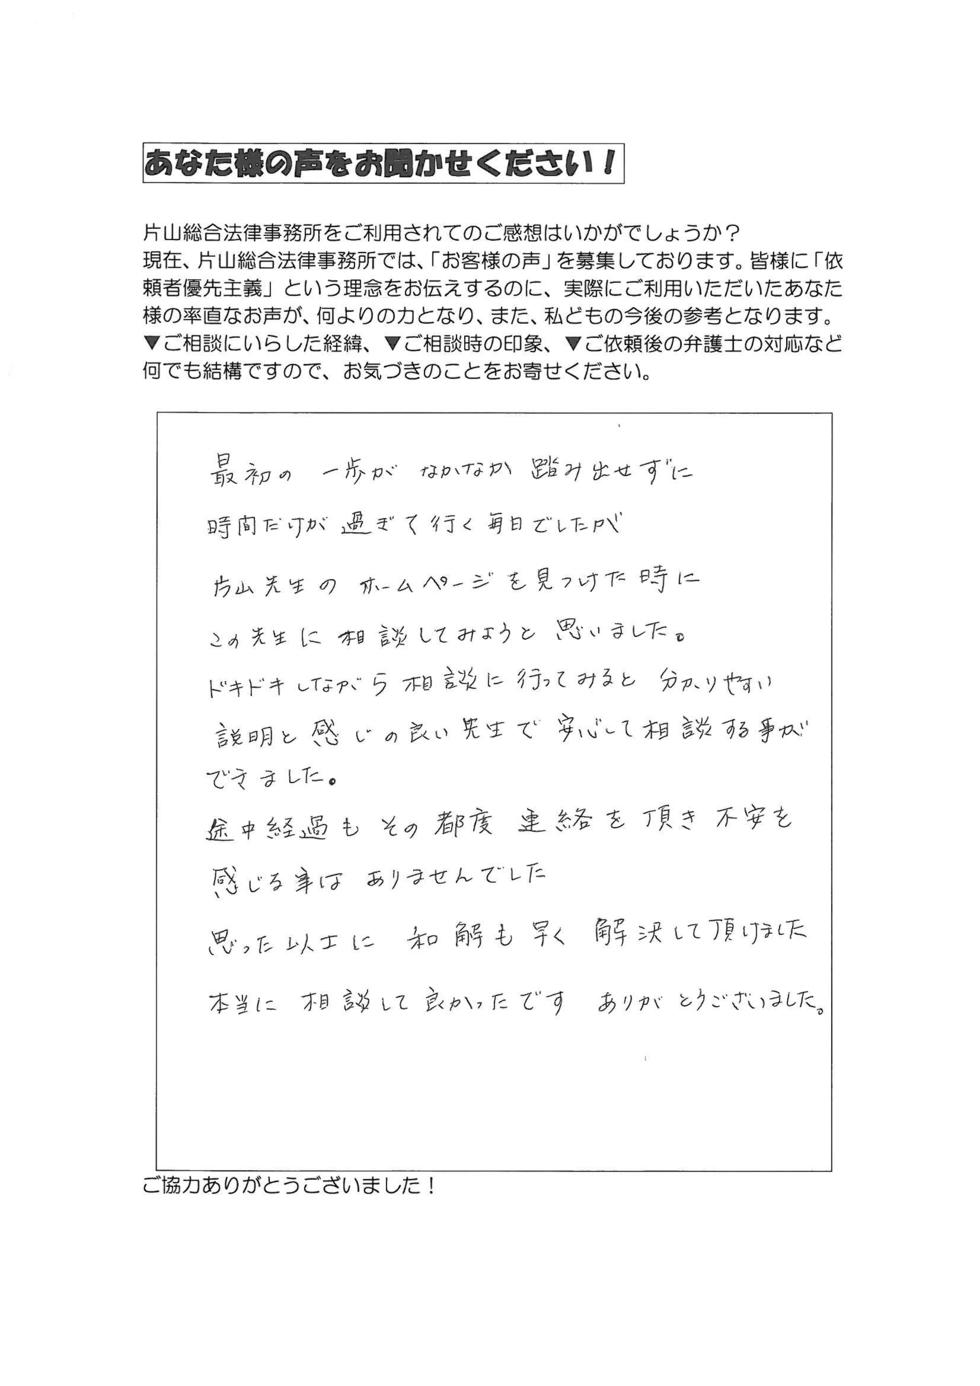 あなた様の声をお聞かせください！
片山総合法律事務所をご利用されてのご感想はいかがでしょうか？
現在、片山総合法律事務所では、「お客様の声」を募集しております。皆様に「依
頼者優先主義」という理念をお伝えするのに、実際にご利用いただいたあなた
様の率直なお声が、何よりの力となり、また、私どもの今後の参考となります。
▼ご相談にいらした経緯、▼ご相談時の印象、▼ご依頼後の弁護士の対応など
何でも結構ですので、お気づきのことをお寄せください。
最初の 一歩が なかなか 踏み出せずに
時間だけが 過ぎて行く毎日でしたが
片山先生の ホームページを見つけた時に
この先生に 相談してみようと 思いました。
ドキドキしながら 相談に行ってみると 分かりやすい
説明と 感じの良い先生で 安心して相談する事が
できました。
途中経過も その都度 連絡を頂き 不安を
感じる事は ありませんでした
思った以上に 和解も早く 解決して頂けました
本当に 相談して良かったです ありがとうございました。
ご協力ありがとうございました！